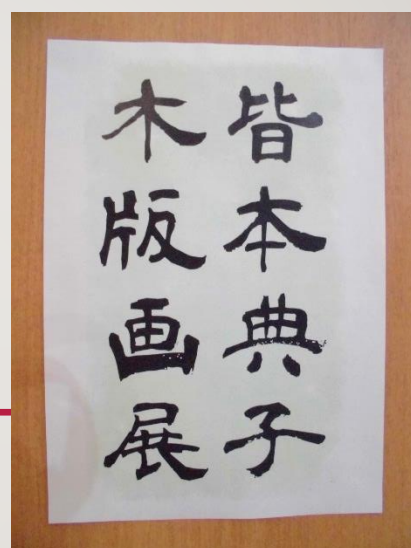 皆本典子
木版画展